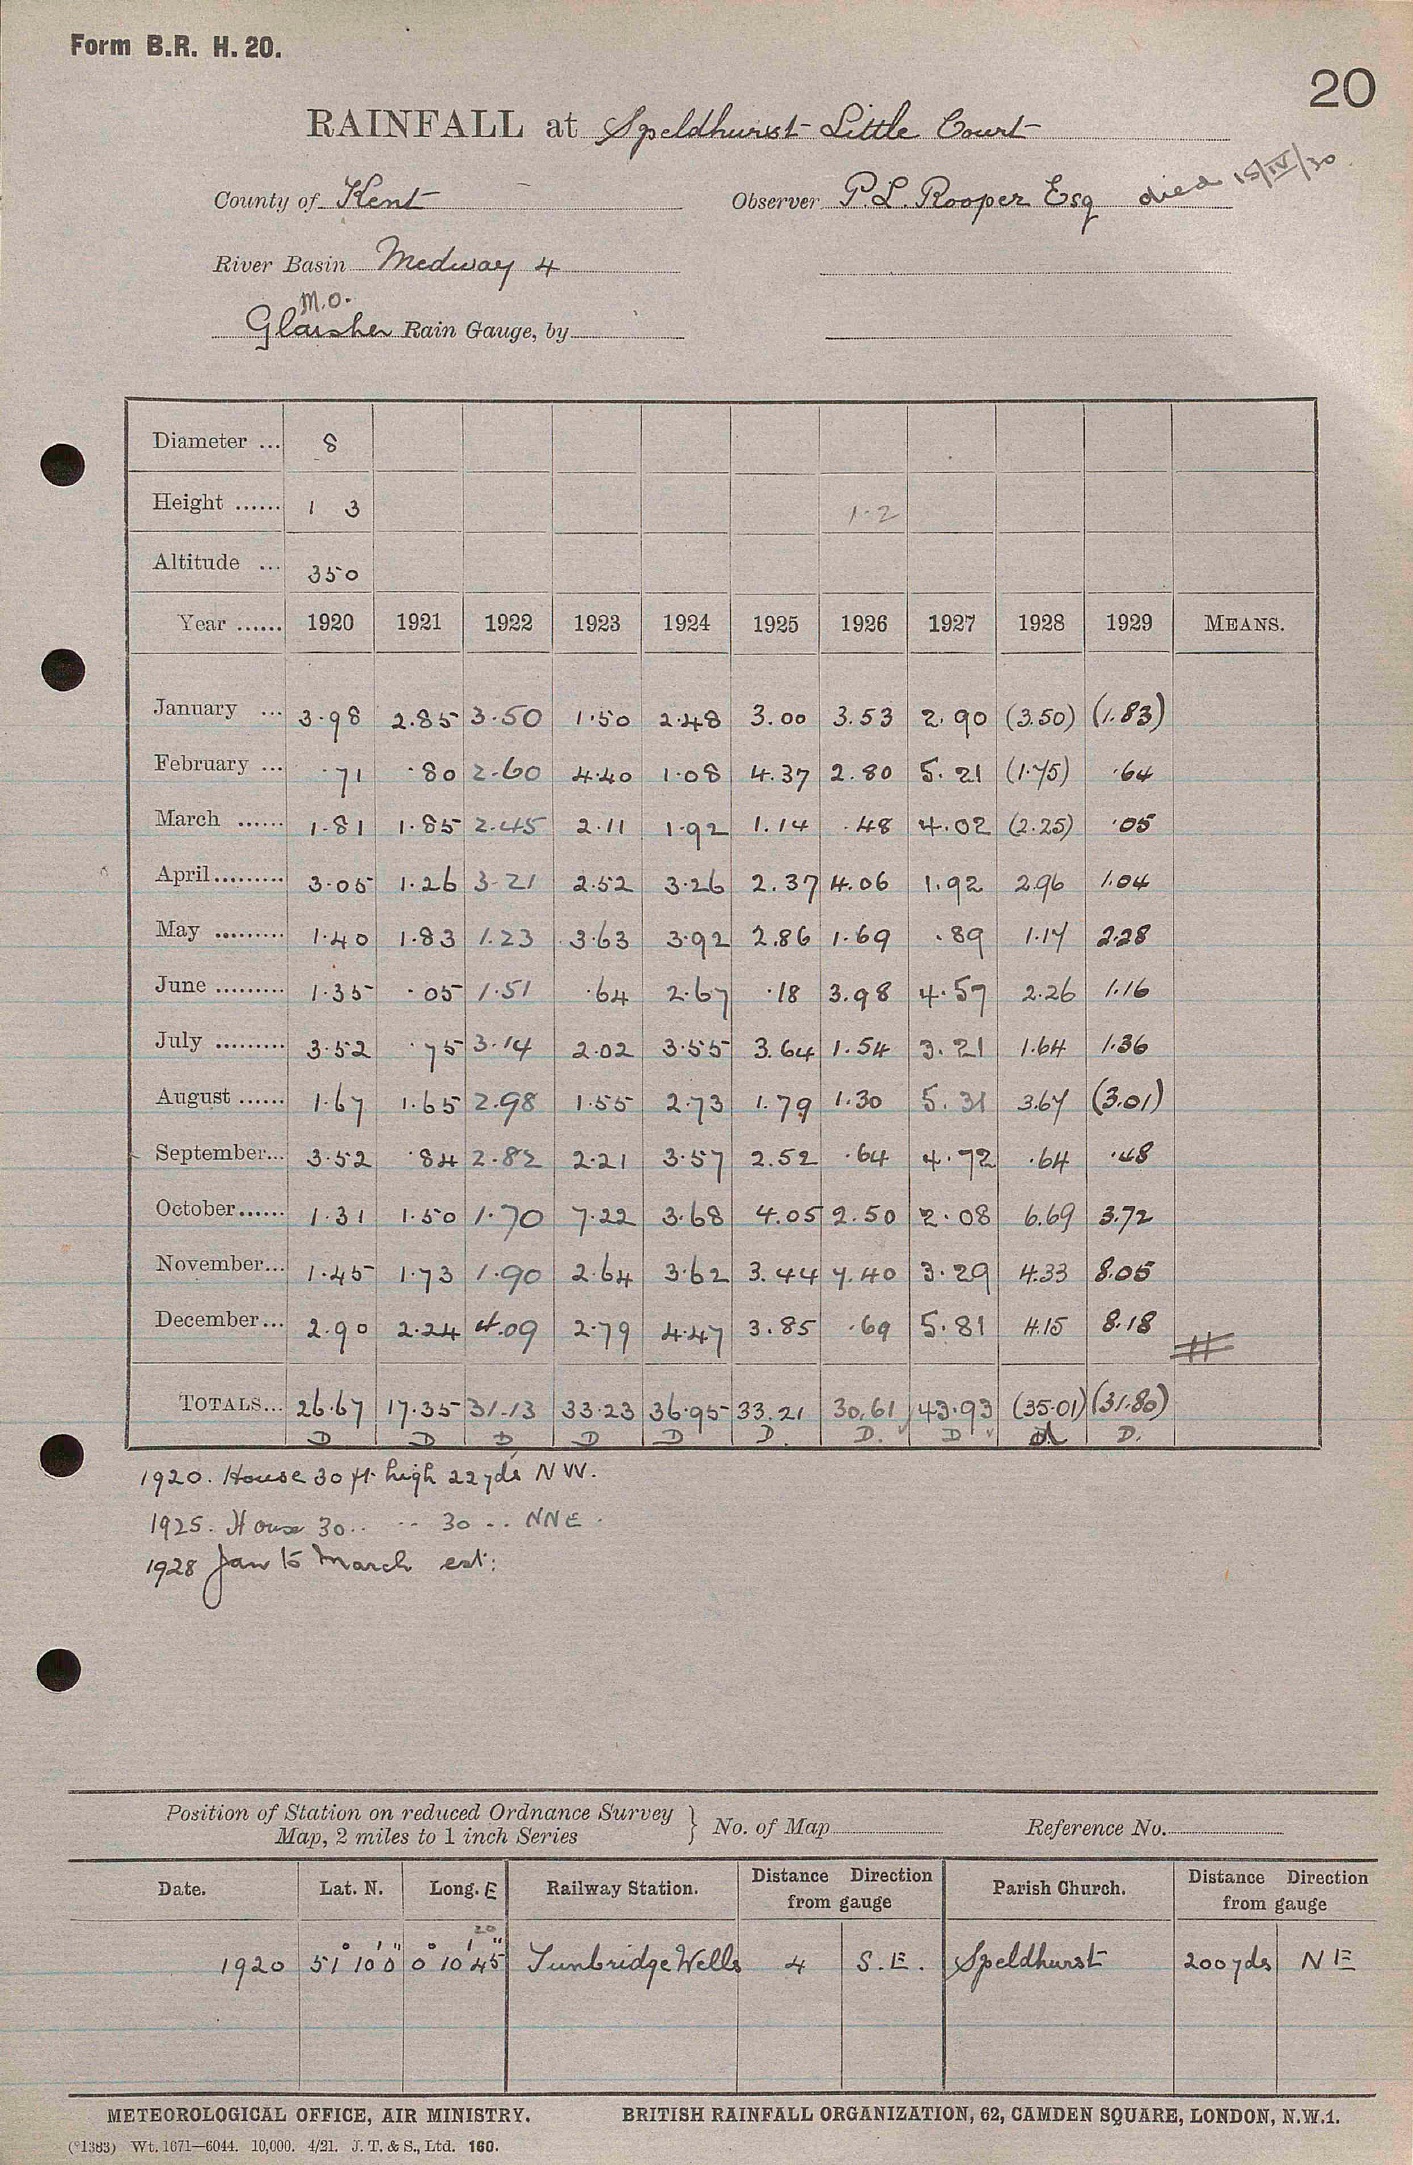 Form B.R. H. 20.
20
RAINFALL at Speldhurst Little Court
County of Kent Observer P.L. Rooper Esq died 15/IV/30
River Basin Medway 4
M.O.
Glaisher Rain Gauge, by
Diameter ... 8
Height ...... 1 3 1·2
Altitude ... 350
Year ...... 1920 1921 1922 1923 1924 1925 1926 1927 1928 1929 MEANS.
January ... 3·98 2.85 3·50 1·50 2·48 3.00 3.53 2.90 (3.50) (1.83)
February ... ·71 ·80 2·60 4·40 1·08 4.37 2.80 5.21 (1.75) ·64
March ...... 1·81 1·85 2·45 2·11 1·92 1.14 ·48 4·02 (2.25) ·05
April......... 3·05 1·26 3·21 2·52 3·26 2.37 4·06 1.92 2.96 1.04
May ......... 1·40 1·83 1.23 3·63 3·92 2.86 1·69 ·89 1.17 2.28
June ......... 1·35 ·05 1·51 ·64 2·67 ·18 3.98 4·57 2.26 1.16
July ......... 3·52 ·75 3·14 2·02 3·55 3.64 1.54 3.21 1.64 1.36
August ...... 1·67 1·65 2·98 1·55 2·73 1.79 1·30 5.31 3.67 (3.01)
September... 3·52 ·84 2·82 2·21 3·57 2.52 ·64 4·72 ·64 ·48
October...... 1·31 1·50 1·70 7·22 3·68 4.05 2.50 2·08 6.69 3.72
November... 1·45 1·73 1·90 2·64 3·62 3.44 7.40 3·29 4.33 8.05
December... 2·90 2·24 4·09 2·79 4·47 3.85 ·69 5·81 4.15 8.18
TOTALS... 26·67 17·35 31·13 33·23 36·95 33.21 30.61 43·93 (35.01) (31.80)
D D D D D D. D. D d. D.
1920. House 30 ft high 22 yds NW.
1925. House 30.. .. 30 .. NNE.
1928 Jan to March est:
Position of Station on reduced Ordnance Survey
Map, 2 miles to 1 inch Series } No. of Map Reference No.
Date. Lat. N. Long. E Railway Station. Distance Direction from gauge Parish Church. Distance Direction from gauge
20
1920 51° 10' 0" 0° 10' 45" Tunbridge Wells 4 S.E. Speldhurst 200 yds NE
METEOROLOGICAL OFFICE, AIR MINISTRY. BRITISH RAINFALL ORGANIZATION, 62, CAMDEN SQUARE, LONDON, N.W.1.
(*1383) Wt. 1671—6044. 10,000. 4/21. J. T. & S., Ltd. 160.